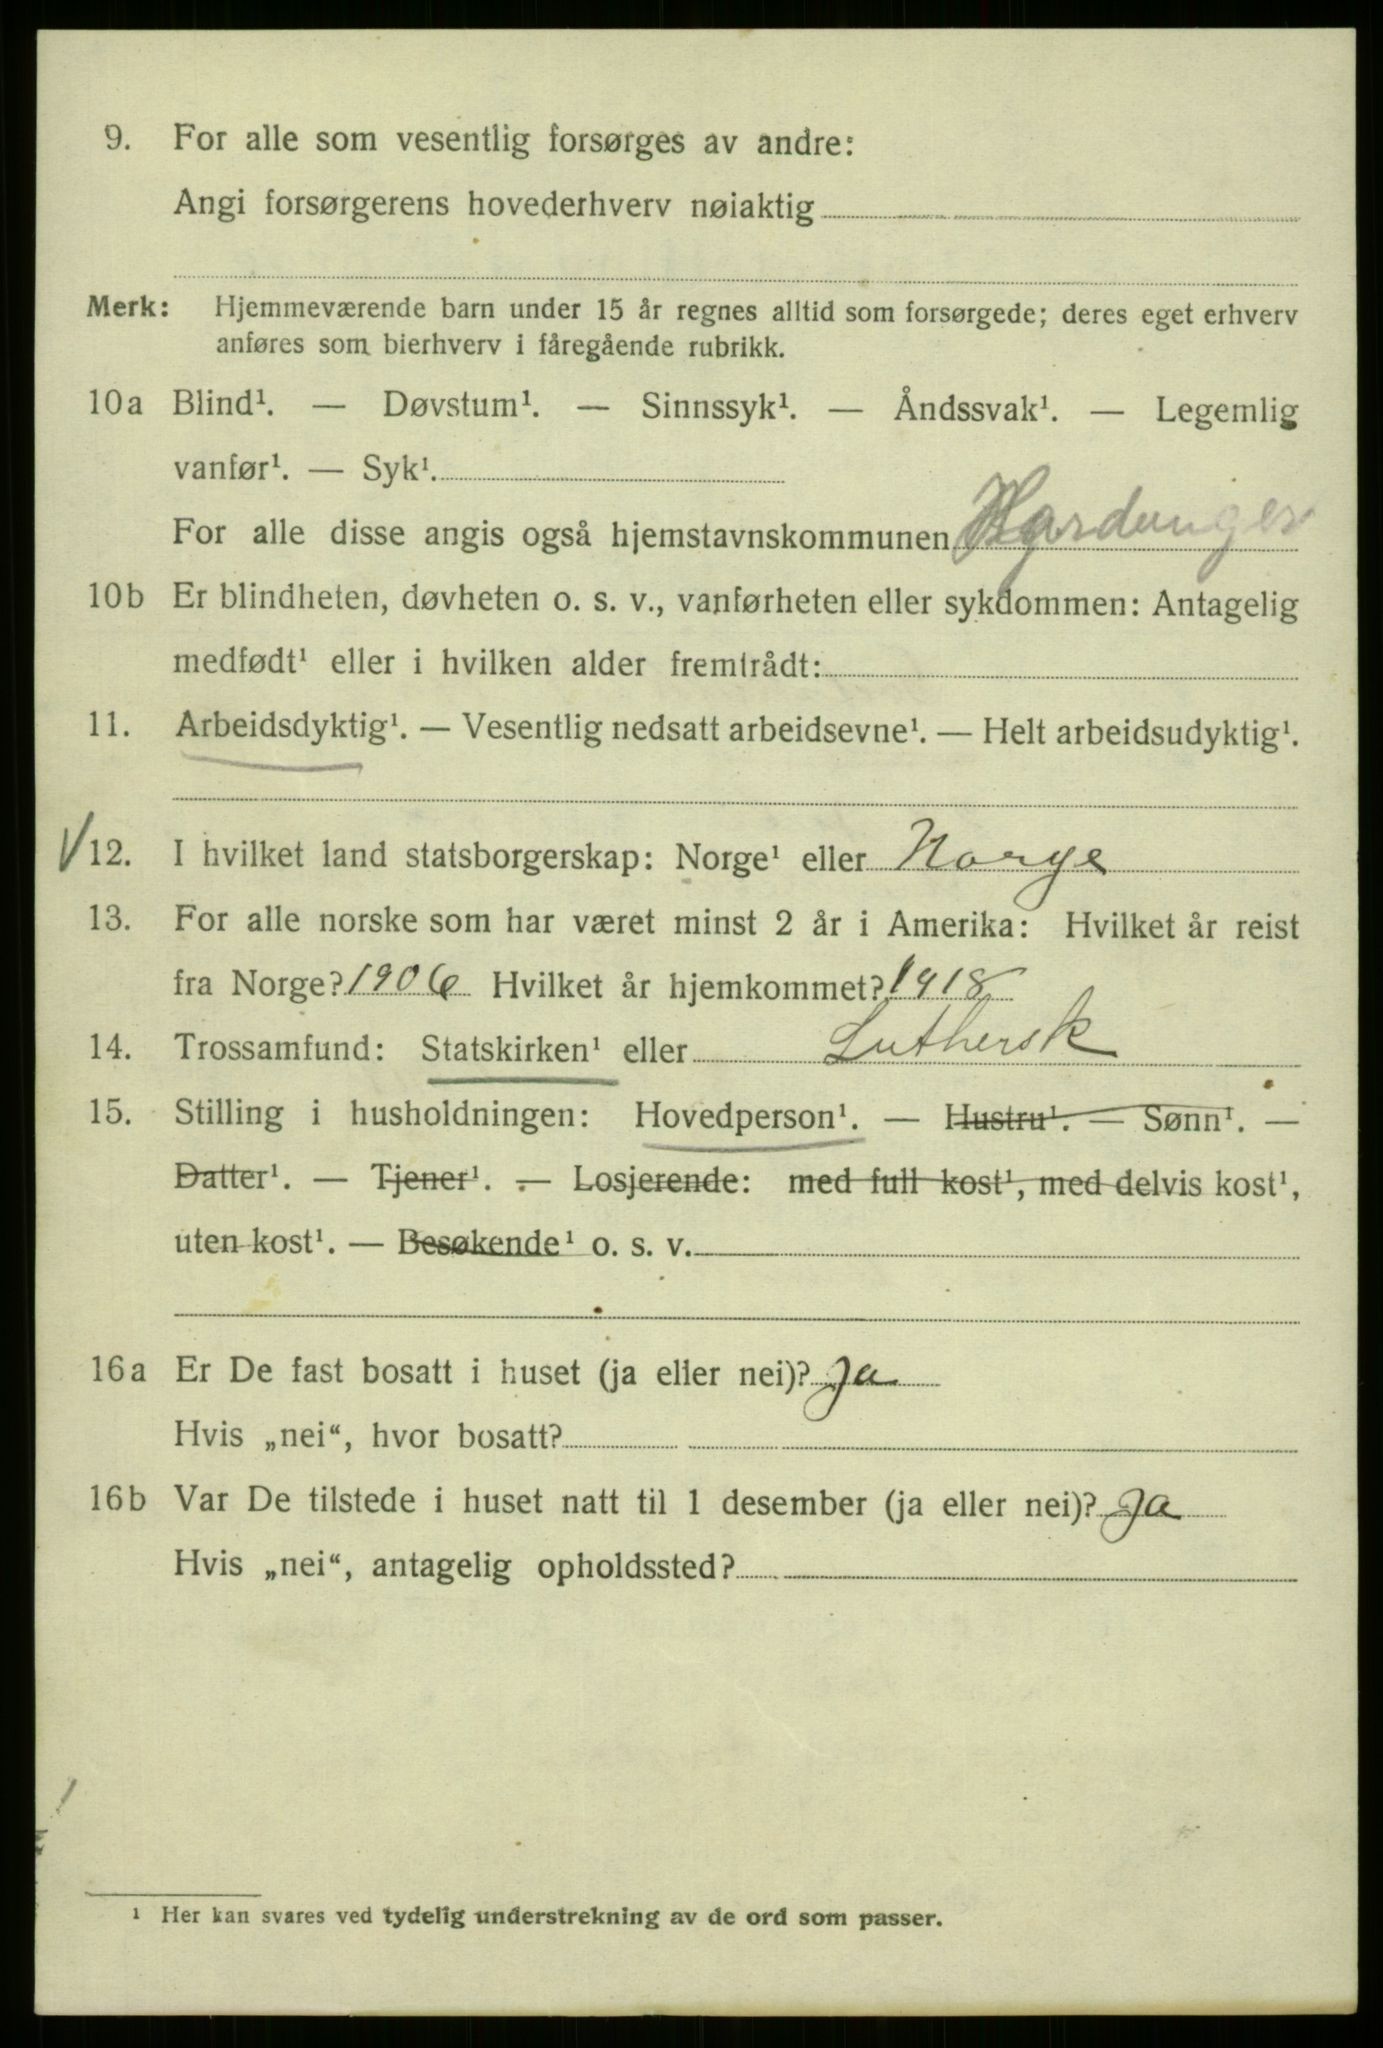 9. For alle som vesentlig forsørges av andre:
Angi forsørgerens hovederhverv nøiaktig
Merk: Hjemmeværende barn under 15 år regnes alltid som forsørgede; deres eget erhverv
anføres som bierhverv i føregående rubrikk.
10a Blind¹. — Døvstum¹. — Sinnssyk¹. — Åndssvak¹. — Legemlig
vanfør¹. — Syk¹.
For alle disse angis også hjemstavnskommunen Hardanger
10b Er blindheten, døvheten o. s. v., vanførheten eller sykdommen: Antagelig
medfødt¹ eller i hvilken alder fremtrådt:
11. Arbeidsdyktig¹. — Vesentlig nedsatt arbeidsevne¹. — Helt arbeidsudyktig¹.
V 12. I hvilket land statsborgerskap: Norge¹ eller Norge
13. For alle norske som har været minst 2 år i Amerika: Hvilket år reist
fra Norge? 1906 Hvilket år hjemkommet? 1918
14. Trossamfund: Statskirken¹ eller Luthersk
15. Stilling i husholdningen: Hovedperson¹. — Hustru¹. — Sønn¹. —
Datter¹. — Tjener¹. — Losjerende: med full kost¹, med delvis kost¹,
uten kost¹. — Besøkende¹ o. s. v.
16a Er De fast bosatt i huset (ja eller nei)? Ja
Hvis „nei“, hvor bosatt?
16b Var De tilstede i huset natt til 1 desember (ja eller nei)? Ja
Hvis „nei“, antagelig opholdssted?
¹ Her kan svares ved tydelig understrekning av de ord som passer.